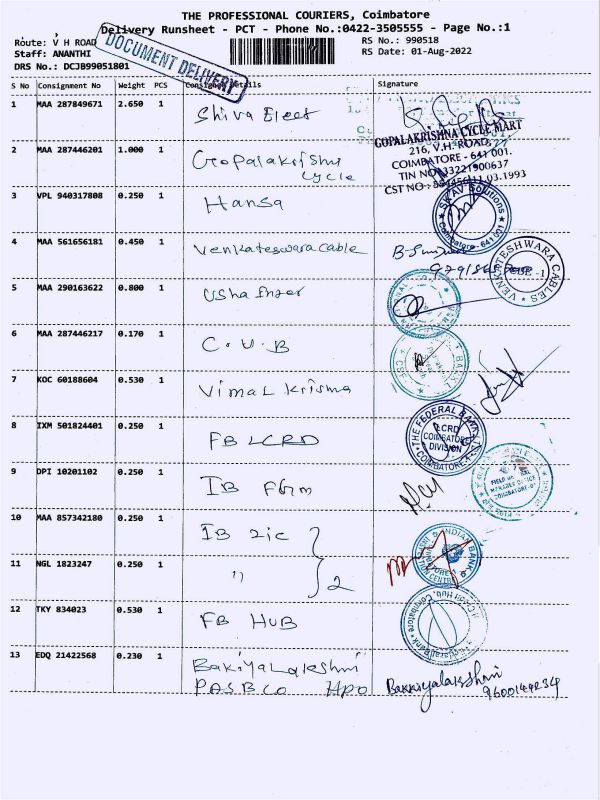 THE PROFESSIONAL COURIERS, Coimbatore
Delivery Runsheet - PCT - Phone No.:0422-3505555 - Page No.:1
Route: V H ROAD
RS No.: 990518
Staff: ANANTHI
RS Date: 01-Aug-2022
DRS No.: DCJB99051801
DOCUMENT DELIVERY
S No Consignment No Weight PCS Consignee Details Signature
1 MAA 287849671 2.650 1 Shiva Elect
GOPALAKRISHNA CYCLE MART
216, V.H. ROAD,
COIMBATORE - 641 001.
TIN NO 33221900637
2 MAA 287446201 1.000 1 Gopalakrishna
cycle
3 VPL 940317808 0.250 1 Hansa
SKAV Solutions
Coimbatore - 641 001
4 MAA 561656181 0.450 1 Venkateswara cable
VENKATESHWARA CABLES
CBE - 1
5 MAA 290163622 0.800 1 Usha
6 MAA 287446217 0.170 1 C.U.B
7 KOC 60188604 0.530 1 Vimal Krisma
8 IXM 501824401 0.250 1 FB LCRD
THE FEDERAL BANK LTD.
LCRD
COIMBATORE
DIVISION
COIMBATORE
9 DPI 10201102 0.250 1 IB
10 MAA 857342180 0.250 1 IB zic
INDIAN BANK
11 NGL 1823247 0.250 1 " 2
12 TKY 834023 0.530 1 FB HUB
13 EDQ 21422568 0.230 1 Bakiyalakshmi
PASBCO HPO
Bakkiyalakshmi